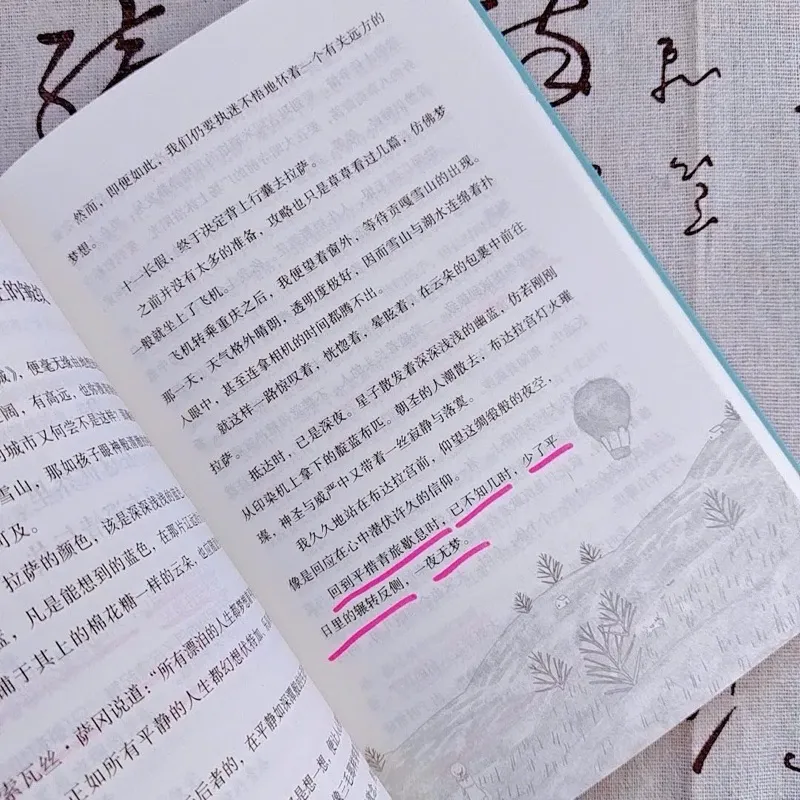 的皱纹
》，便毫无缘由地
园，有高远，也
的城市又何尝不是这样，
雪山，那如孩子眼神般清澈的
可及。
拉萨的颜色，该是深深浅浅的蓝
，凡是能想到的蓝色，在那片辽
于其上的棉花糖一样的云朵，也
索瓦丝·萨冈说道：“所有漂泊的人生都梦想
正如所有平静的人生都幻想伏特加、
后者的，在平静如深潭般
然而，即便如此，我们仍要执迷不悟地怀着一个有关远方的
梦想。
十一长假，终于决定背上行囊去拉萨。
之前并没有太多的准备，攻略也只是草草看过几篇，仿佛梦
一般就坐上了飞机。
飞机转乘重庆之后，我便望着窗外，等待贡嘎雪山的出现。
那一天，天气格外晴朗，透明度极好，因而雪山与湖水连绵着扑
入眼中，甚至连拿相机的时间都腾不出。
就这样一路惊叹着，恍惚着，晕眩着，在云朵的包裹中前往
拉萨。
抵达时，已是深夜。星子散发着深深浅浅的幽蓝，仿若刚刚
从印染机上拿下的靛蓝布匹。朝圣的人潮散去，布达拉宫灯火璀
璨，神圣与威严中又带着一丝寂静与落寞。
我久久地站在布达拉宫前，仰望这绸缎般的夜空，
像是回应在心中潜伏许久的信仰。
回到平措青旅歇息时，已不知几时，少了平
日里的辗转反侧，一夜无梦。